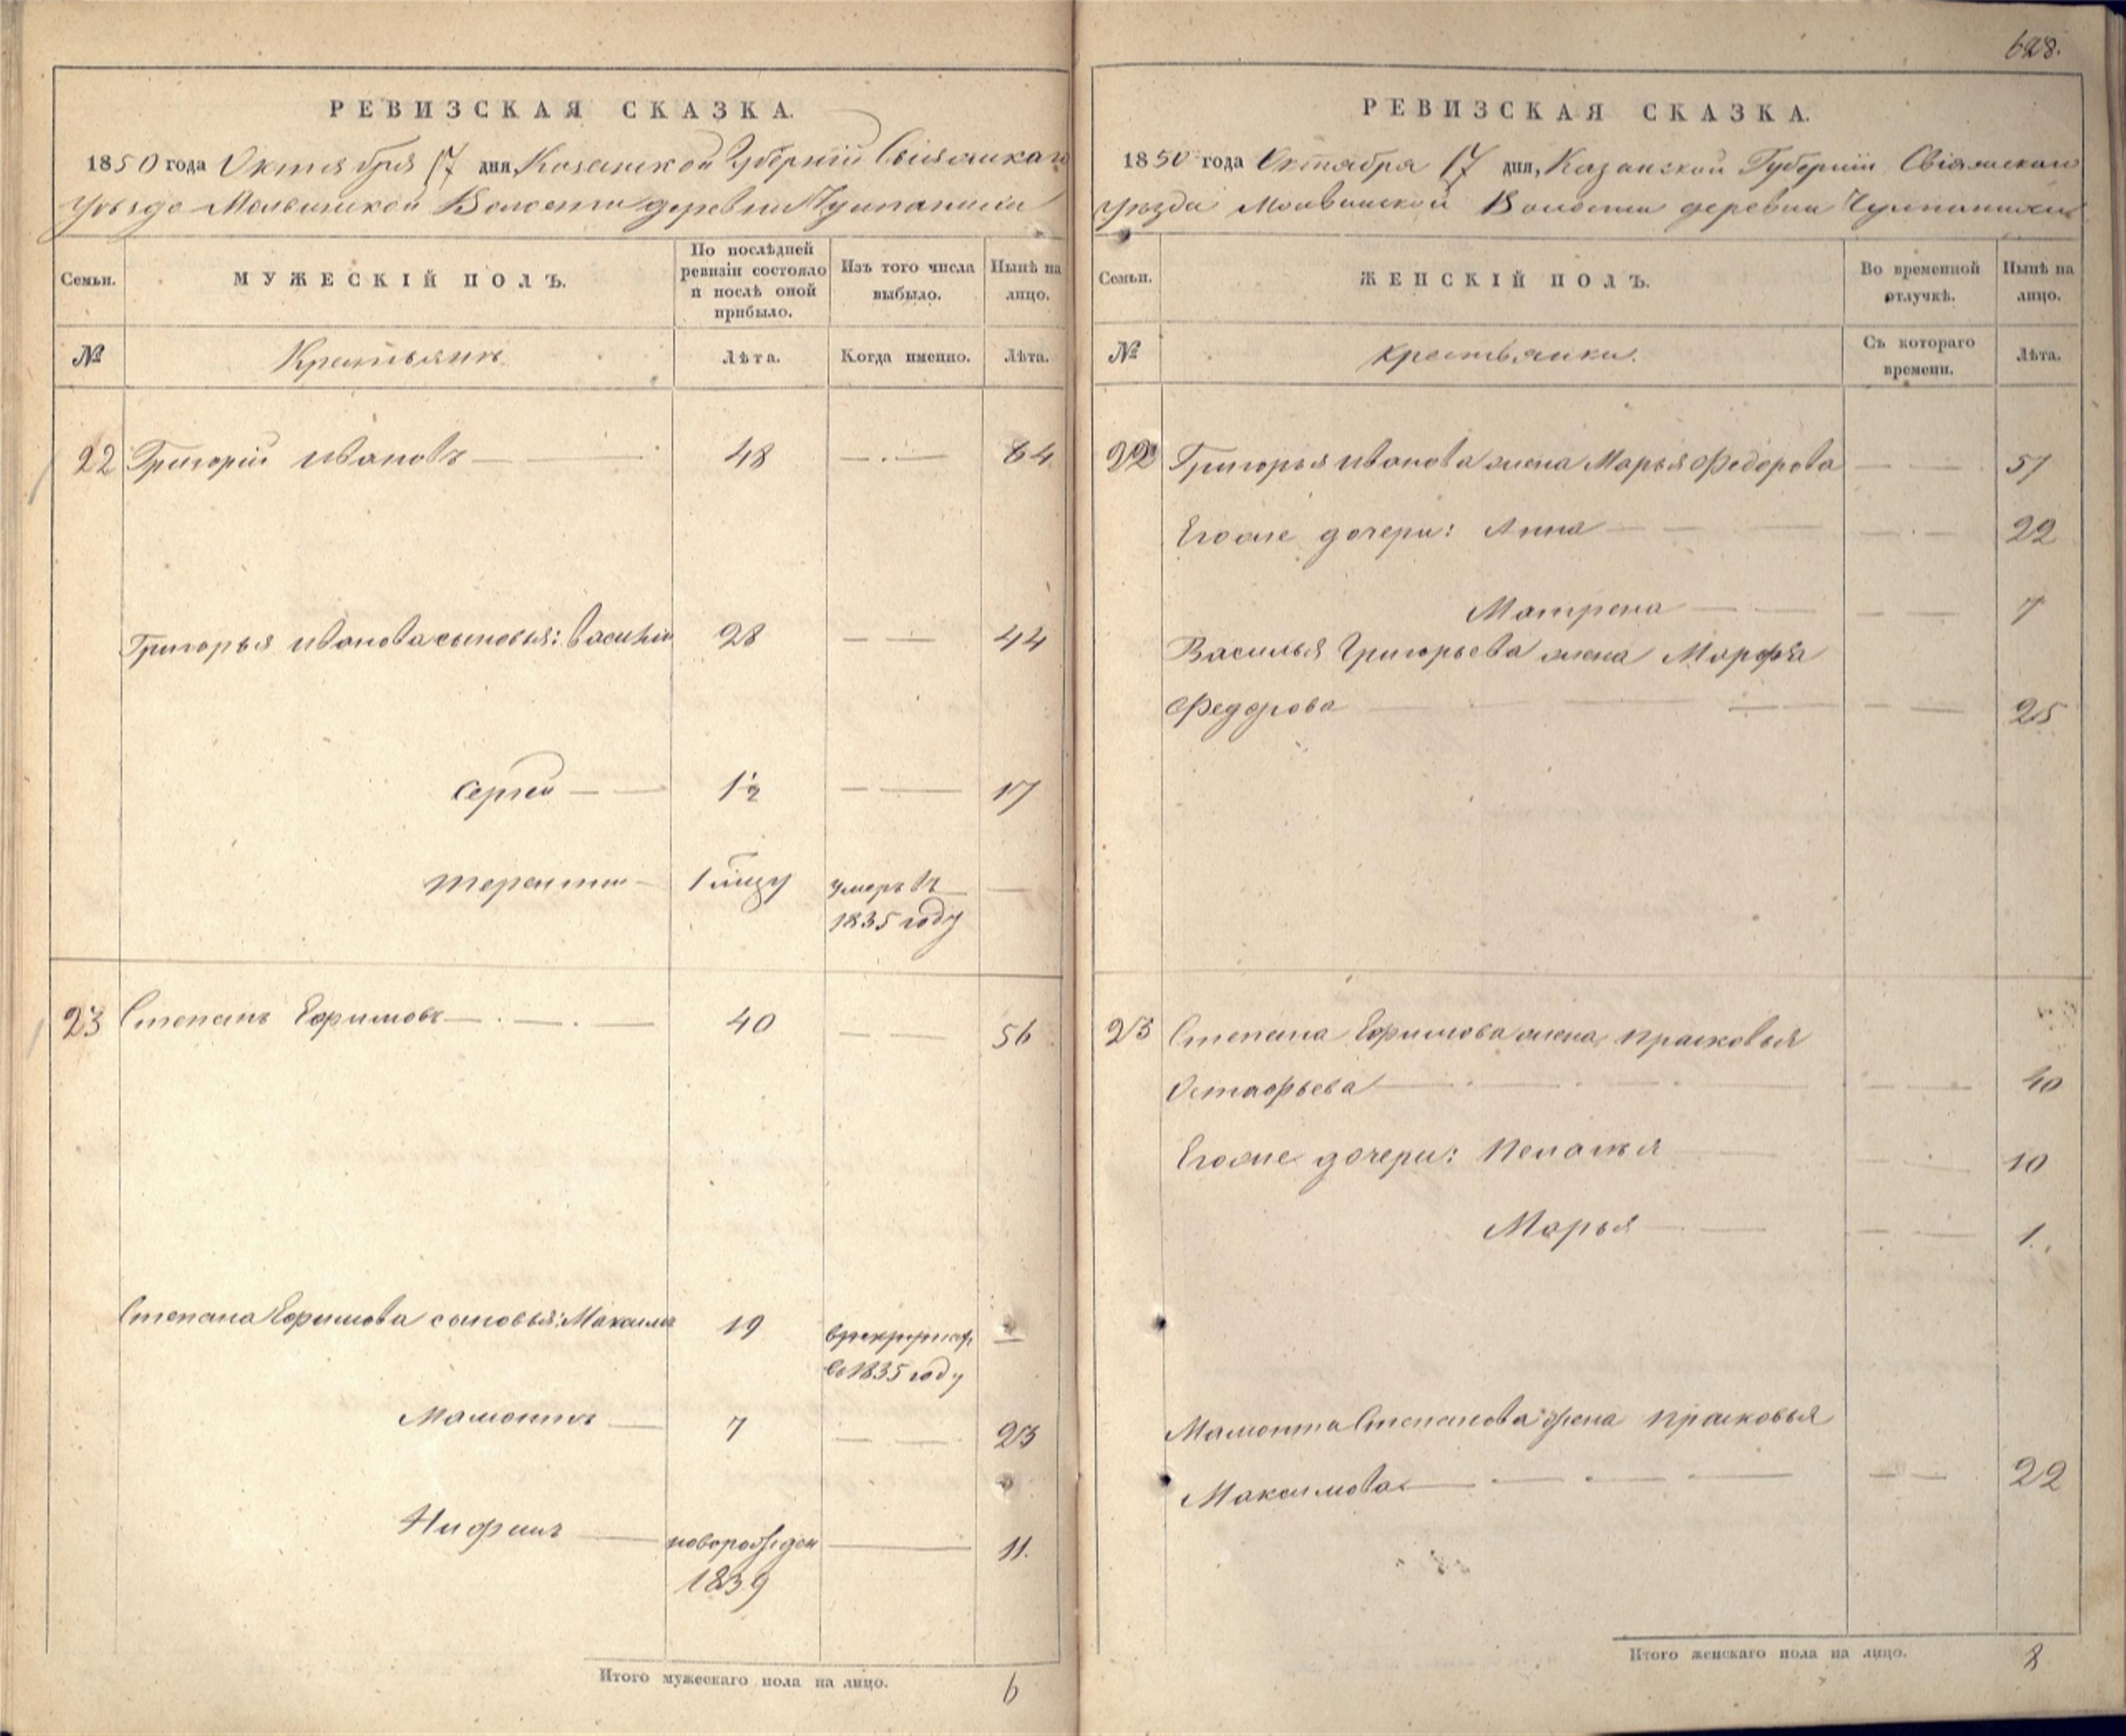 РЕВИЗСКАЯ СКАЗКА.
1850 года Октября 17 дня, Казанской Губернии Свіяжскаго
уѣзда Молвинской Волости деревни
Семьи.
МУЖЕСКІЙ ПОЛЪ.
По послѣдней ревизіи состояло и послѣ оной прибыло.
Изъ того числа выбыло.
Нынѣ на лицо.
№
Крестьянъ
Лѣта.
Когда именно.
Лѣта.
22 Григорій Ивановъ 48 64
Григорья Иванова сыновья: Василій 28 44
Сергей 1½ 17
Терентій 1 умеръ въ
1835 году
23 Степанъ Ефимовъ 40 56
Степана Ефимова сыновья: Максимъ 19
в 1835 году
Мамонтъ 7 23
новорожден 11.
1839
Итого мужескаго пола на лицо. 6
628.
РЕВИЗСКАЯ СКАЗКА.
1850 года Октября 17 дня, Казанской Губерніи Свіяжскаго
уѣзда Молвинской Волости деревни
Семьи.
ЖЕНСКІЙ ПОЛЪ.
Во временной отлучкѣ.
Нынѣ на лицо.
№
Крестьянки.
Съ котораго времени.
Лѣта.
22 Григорья Иванова жена Марья Федорова 51
Его же дочери: Анна 22
Матрена 7
Василья Григорьева жена Марфа
Федорова 25
23 Степана Ефимова жена Прасковья
Остафьева 40
Его же дочери: Пелагья 10
Марья 1.
Мамонта Степанова жена Прасковья
Максимова 22
Итого женскаго пола на лицо. 8